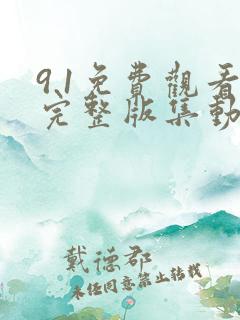 9.1免費觀看
完整版集動
戴德郡
未经同意禁止转载